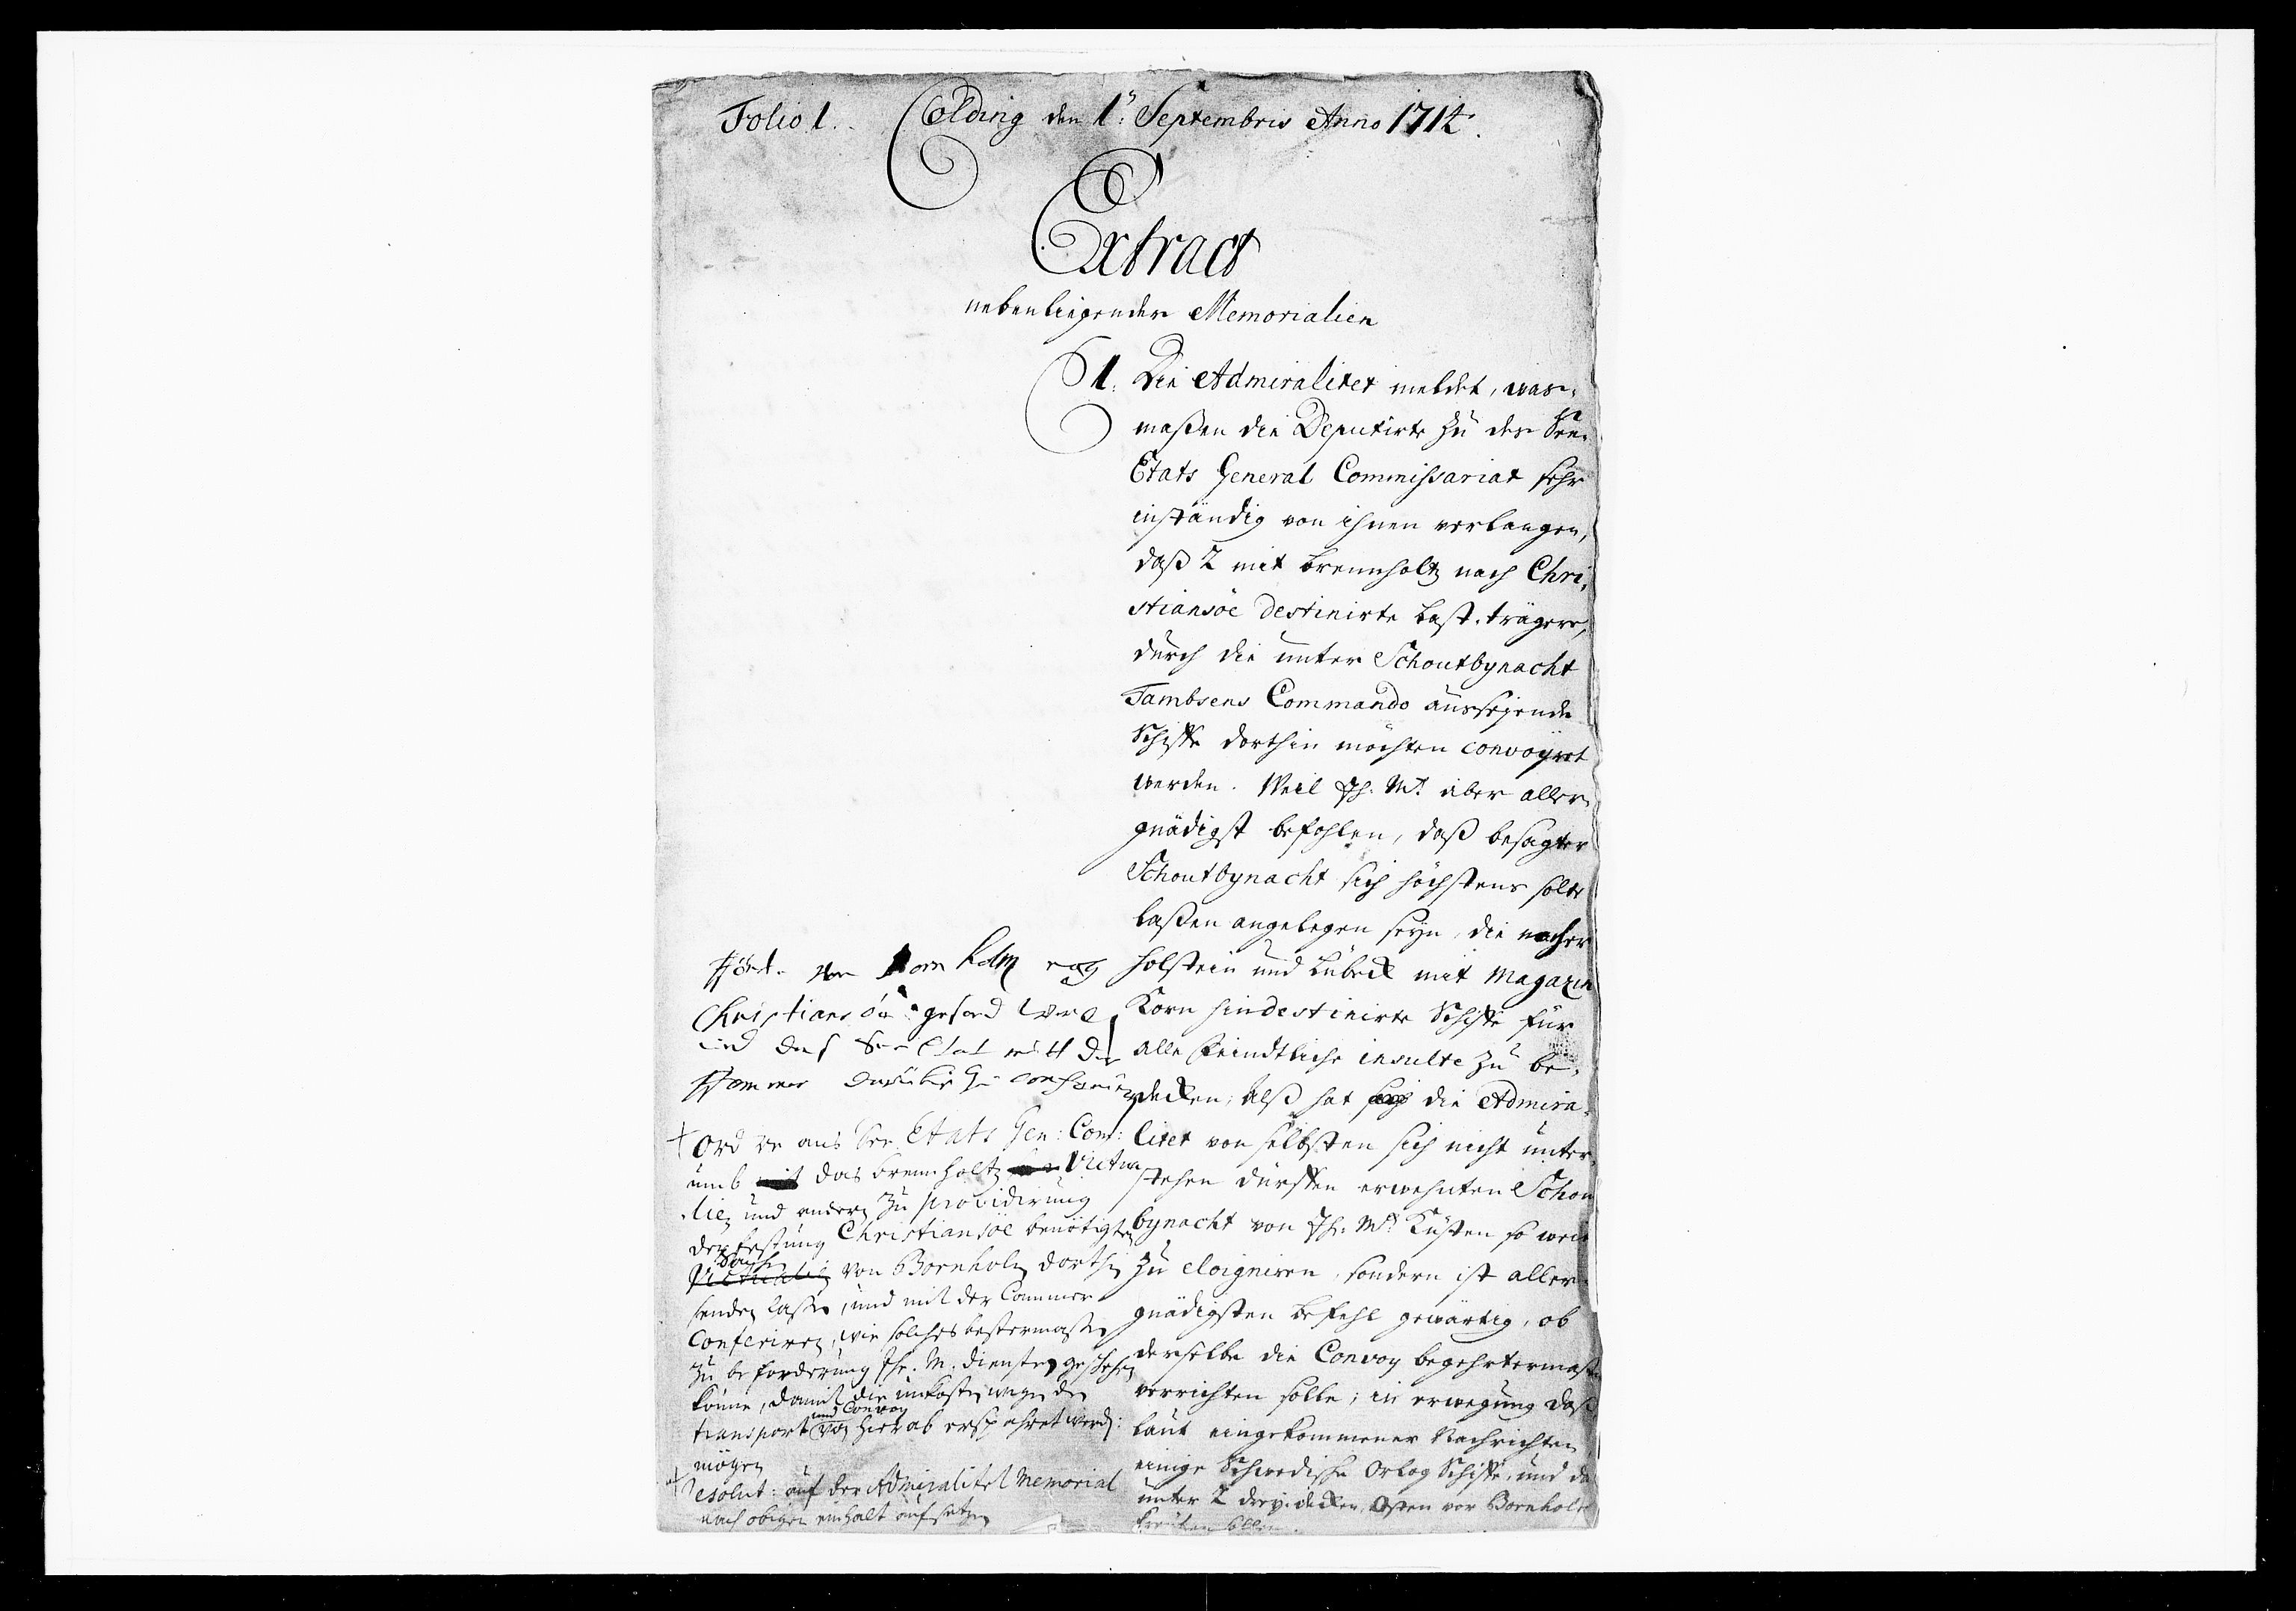 Folio 1. Colding den 1: Septembris Anno 1712.
Extract
nebenliegender Memorialien
1. Die Admiralitet meldet, was-
maßen die Deputirte zu der See-
Etats General Commissariat sehr
inständig von ihnen verlangen,
daß 2 mit brennholtz nach Chri-
stiansöe destinirte Last-trägere,
durch die unter Schoutbynacht
Tambsens Commando aussejende
Schiffe dorthin möchten convoyret
werden. Weil Ih. Mt. aber aller-
gnädigst befohlen, daß besagter
Schoutbynacht sich höchstens solte
laßen angelegen seyn, die nacher
Holstein und Lübeck mit Magazin
Korn hindestinirte Schiffe für
alle Feindtliche insulte zu be-
decken; Alß hat die Admira-
litet von selbsten sich nicht unter-
stehen dürffen erwehnten Schou
bynacht von Ih. Mt. Küsten so weit
zu eloigniren, sondern ist aller-
gnädigsten befehl gewärtig, ob
derselbe die Convoy begehrtermaßen
verrichten solle; in erwegung daß
laut eingekommener Nachrichten
einige Schwedische Orlog Schiffe, und da
unter 2 dreydecker, Osten vor Bornholm
kreutzen sollen.
von Bornholm
Christiansöe gesand werde
und das See Etat mitt der
Cammer darüber zu conferiren
Ordre ans See Etats Gen: Com:
umb das brennholtz Victua
lien und andern zu providirung
der festung Christiansöe benötigten
Sachen
von Bornholm dorthin
senden laßen, und mit der Cammer
Conferiren, wie solches bestermaßen
zu beforderung Ihr. M. diensten geschehen
könne, damit die unkosten wegen den
und Convoy
transport von hier ab ersparet werd:
mögen
Resolut: auf der Admiralitet Memorial
nach obigen einhalt aufsetzen